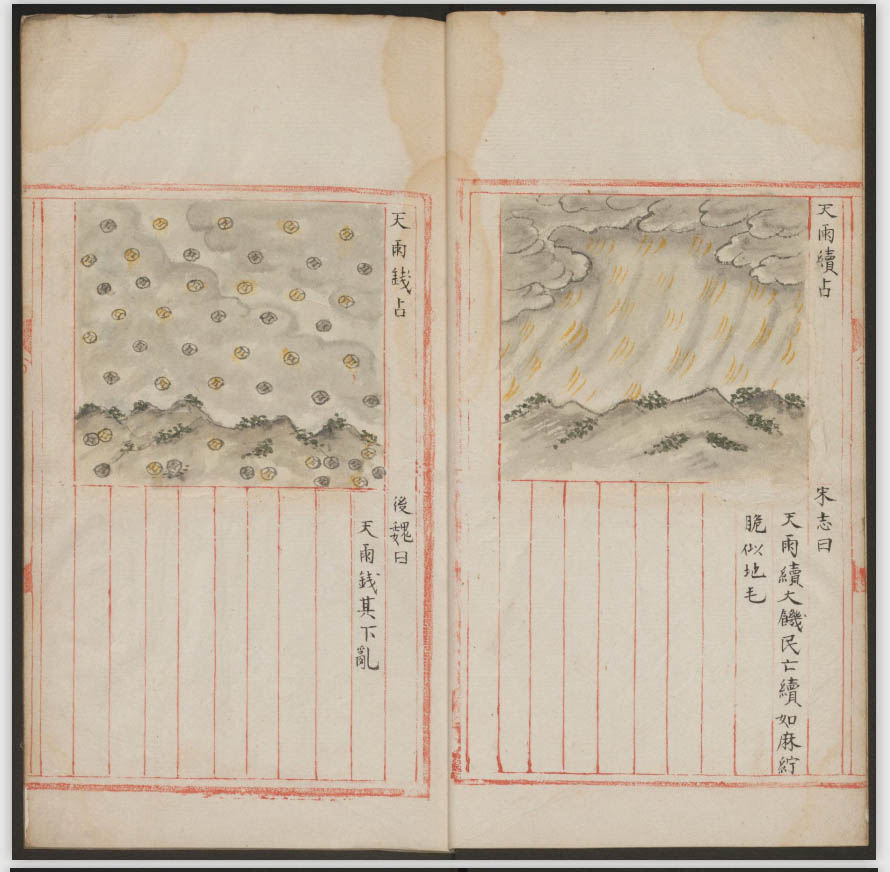 天雨續占
宋志曰
天雨續大饑民亡續如麻紵
脆似地毛
天雨錢占
後魏曰
天雨錢其下亂